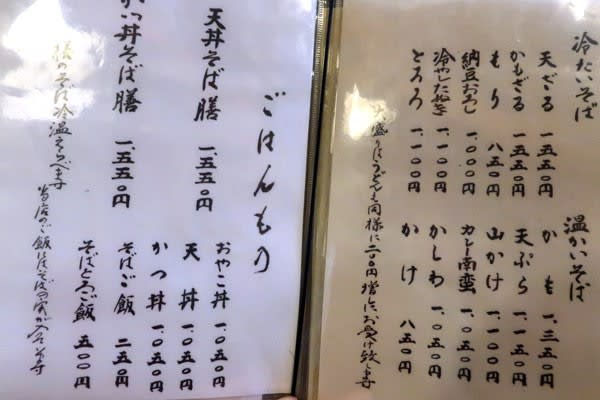 冷たいそば
天ざる 一、五五〇円
かもざる 一、五五〇円
もり 八五〇円
納豆おろし 一、〇〇〇円
冷やしたぬき 一、一〇〇円
とろろ 一、一〇〇円
温かいそば
かも 一、三五〇円
天ぷら 一、一五〇円
山かけ 一、一〇〇円
カレー南蛮 一、〇五〇円
かしわ 一、〇五〇円
かけ 八五〇円
盛りはうどんも同様に二〇〇円増しにてお受け致します
ごはんもの
天丼そば膳 一、五五〇円
かつ丼そば膳 一、五五〇円
様のそば冷温えらべます
おやこ丼 一、〇五〇円
天丼 一、〇五〇円
かつ丼 一、〇五〇円
そばご飯 二五〇円
そばとろご飯 五〇〇円
当店のご飯にはそばの実が入ります